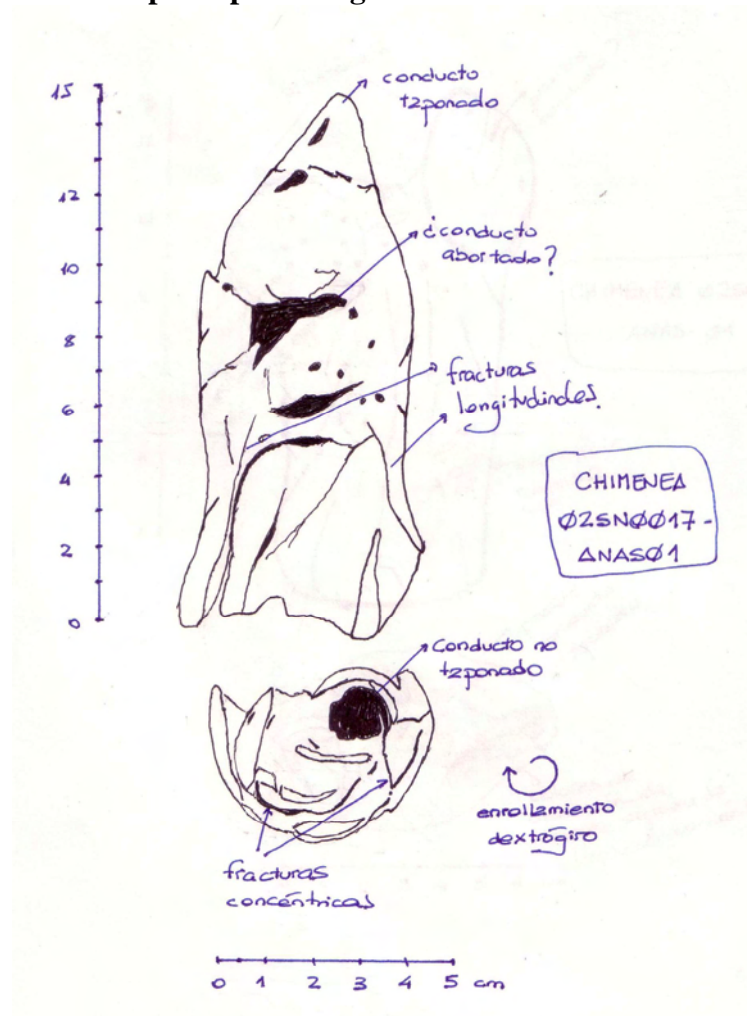 15
conducto
taponado
12
10
¿conducto
abortado?
8
fracturas
longitudinales.
6
4
2
0
CHIMENEA
Ø2SNØØ17-
ANASØ1
Conducto no
taponado
enrollamiento
dextrógiro
fracturas
concéntricas
0 1 2 3 4 5 cm